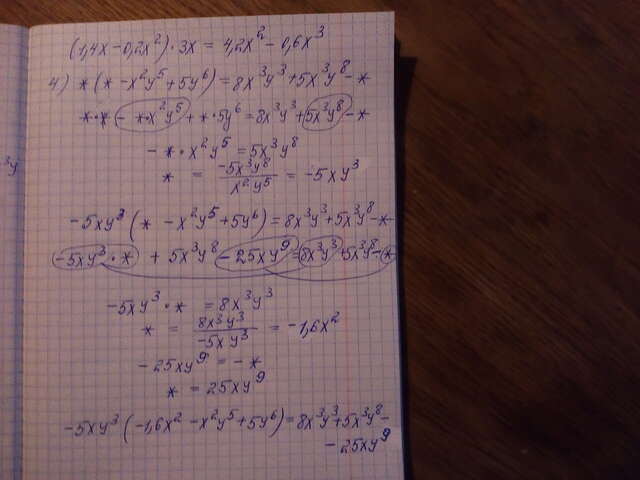 (1,4x-0,2x²)·3x = 4,2x² - 0,6x³
4) * (* -x²y⁵+5y⁶)=8x³y³+5x³y⁸-*
*·* - *·x²y⁵ + *·5y⁶=8x³y³+5x³y⁸-*
- *·x²y⁵ = 5x³y⁸
* = -5x³y⁸/x²y⁵ = -5xy³
-5xy³ (* - x²y⁵+5y⁶)=8x³y³+5x³y⁸-*
-5xy³·* + 5x³y⁸ - 25xy⁹=8x³y³+5x³y⁸-*
-5xy³·* = 8x³y³
* = 8x³y³/-5xy³ = -1,6x²
-25xy⁹ = -*
* = 25xy⁹
-5xy³ (-1,6x² -x²y⁵+5y⁶)=8x³y³+5x³y⁸-
-25xy⁹
³y